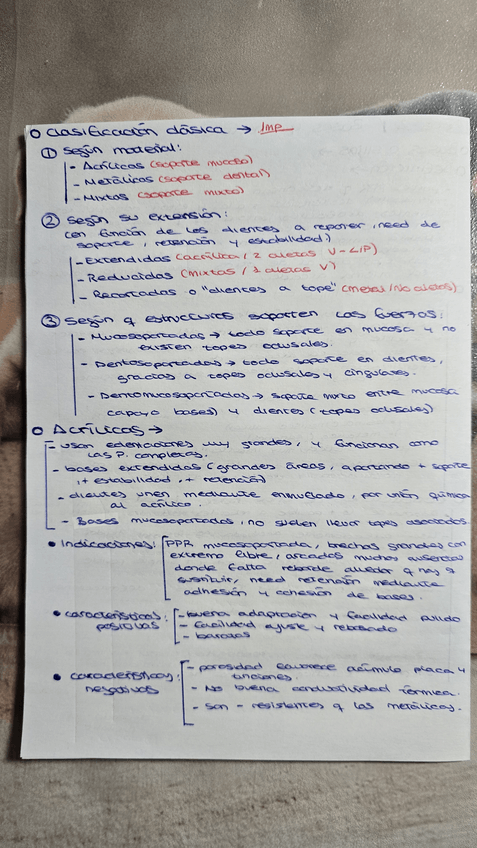 o Clasificación clásica → Imp
① Según material:
- Acrílicas (soporte mucoso)
- Metálicas (soporte dental)
- Mixtas (soporte mixto)
② Según su extensión:
(en función de los dientes a reponer, need de
soporte, retención y estabilidad)
- Extendidas (acrílica / 2 aletas V-L/P)
- Reducidas (mixtas / 1 aletas V)
- Recortadas o "dientes a tope" (metal / No aletas)
③ Según q estructuras soporten las fuerzas:
- Mucosoportadas → todo soporte en mucosa y no
existen topes oclusales.
- Dentosoportadas → todo soporte en dientes,
gracias a topes oclusales y cingulares.
- Dentomucosoportadas → soporte mixto entre mucosa
(apoyo bases) y dientes (topes oclusales)
o Acrílicas →
- usan extensiones muy grandes, y funcionan como
las P. completas.
- bases extendidas (grandes áreas, aportando + soporte
, + estabilidad, + retención)
- dientes unen mediante enmuflado, por unión química
al acrílico.
- Bases mucosoportadas, no suelen llevar topes asociados.
• Indicaciones: PPR mucosoportada, brechas grandes con
extremo libre, arcadas muchas ausencias
donde falta reborde alveolar q hay q
sustituir, need retención mediante
adhesión y cohesión de bases.
• características positivas: - buena adaptación y facilidad pulido
- facilidad ajuste y rebasado
- baratas
• características negativas: - porosidad favorece acúmulo placa y
tinciones.
- No buena conductividad térmica.
- Son - resistentes q las metálicas.